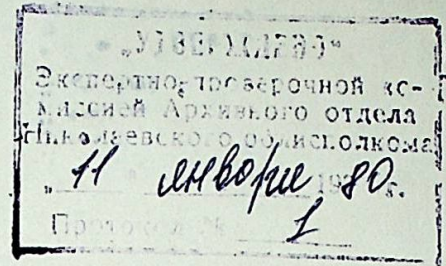 „УТВЕРЖДЕНО“
Экспертно-проверочной ко-
миссией Архивного отдела
Николаевского облисполкома
„11 января 1980 г.
Протокол № 1